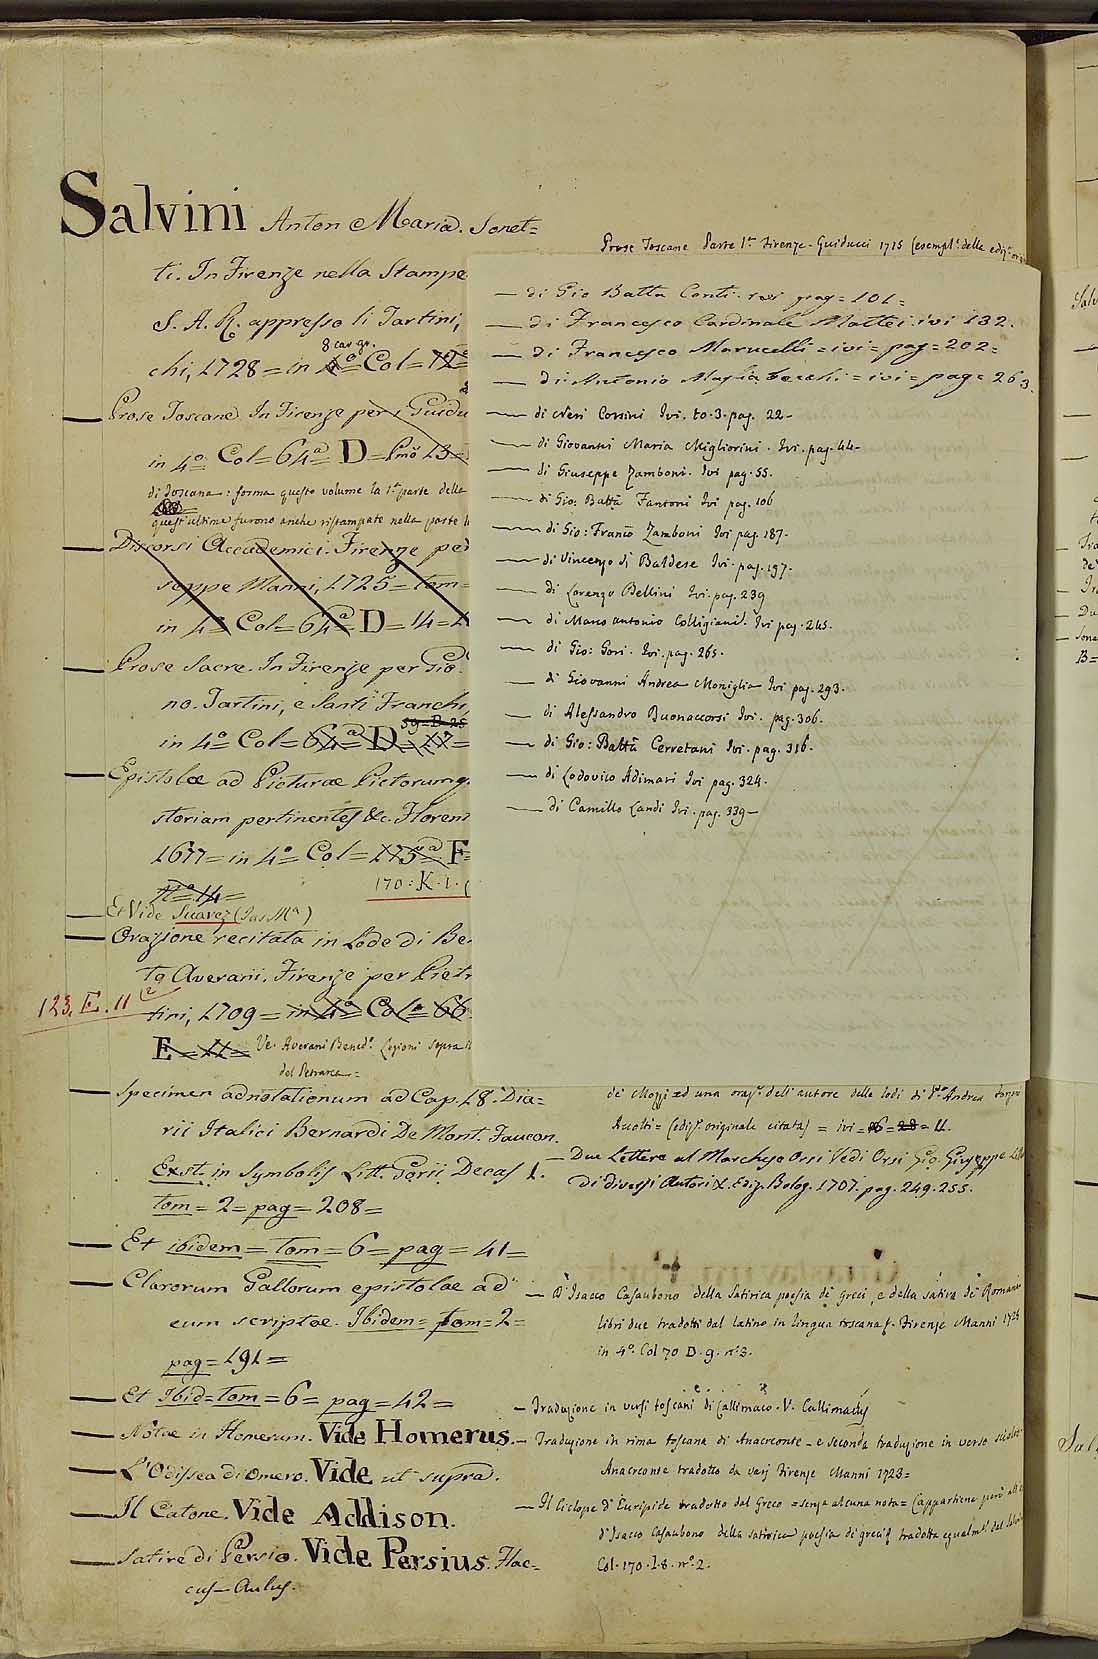 Salvini Anton Maria. Sonet=
ti. In Firenze nella Stampe
S. A. R. appresso li Tartini,
8 car. gr.
chi, 1728 = in 4º = Col = 72
Prose Toscane. In Firenze per i Guidu
in 4º Col = 64ª = D = Pmõ 13 =
di Toscana: forma questo volume la 1ª parte della
quest'ultime furono anche ristampate nella parte
Discorsi Accademici. Firenze per
seppe Manni, 1725 = tom =
in 4º Col = 64ª D = 14 =
Prose Sacre. In Firenze per Gio.
no. Tartini, e Santi Franchi,
59 = B. 25
in 4º Col = 64ª D = 17 =
Epistolæ ad Picturæ Pictorumq.
storiam pertinentes &c. Florent
1677 = in 4º Col = 175ª F =
nº 14 =
170 = K. 1.
Et Vide Suarez (Jos. Mª)
Orazione recitata in Lode di Be
to Averani. Firenze per Pietr
123. E. 11
tini, 1709 = in 4º Col = 66
E = 11 = Ve. Averani Bened.º Lezioni sopra
del Petrarca =
Specimen adnotationum ad Cap. 18. Dia=
rii Italici Bernardi De Mont. Faucon.
Exst. in Symbolis Litt. Gorii. Decas 1.
tom = 2 = pag = 208 =
Et ibidem = tom = 6 = pag = 41 =
Clarorum Gallorum epistolae ad
eum scriptae. Ibidem = tom = 2 =
pag = 191 =
Et Ibid = tom = 6 = pag = 42 =
Notae in Homerum. Vide Homerus.
L'Odissea di Omero. Vide ut supra.
Il Catone. Vide Addison.
Satire di Persio. Vide Persius. Flac=
cus Aulus.
Prose Toscane Parte 1ª Firenze. Guiducci 1715 (esempl.e della ediz.
— di Gio Batta Conti. ivi pag = 101 =
— di Francesco Cardinale Mattei. ivi 132.
— di Francesco Marucelli = ivi = pag = 202 =
— di Antonio Magliabecchi = ivi = pag = 263
— di Neri Corsini Ivi. to. 3. pag. 22 -
— di Giovanni Maria Migliorini. Ivi. pag. 44 -
— di Giuseppe Zamboni. Ivi pag. 55.
— di Gio: Battã Fantoni Ivi pag. 106
— di Gio: Francõ Zamboni Ivi pag. 187.
— di Vincenzo di Baldese Ivi. pag. 197.
— di Lorenzo Bellini Ivi. pag. 239
— di Marco Antonio Colligiani. Ivi pag. 245.
— di Gio: Gori. Ivi. pag. 265.
— di Giovanni Andrea Moniglia Ivi pag. 293.
— di Alessandro Buonaccorsi Ivi. pag. 306.
— di Gio: Battã Cerretani Ivi. pag. 316.
— di Lodovico Adimari Ivi pag. 324.
— di Camillo Landi Ivi. pag. 339 —
de' Mozzi ed una oraz.e dell'autore delle lodi di Sº Andrea
Accolti = (ediz.e originale citata) = ivi = 28 = 11.
— Due Lettere al Marchese Orsi Vedi Orsi Gio. Giuseppe
di diversi Autori &. Ediz. Bolog. 1707. pag. 249. 255.
— D'Isacco Casaubono della Satirica poesia de' greci, e della satira de' Romani
libri due tradotti dal latino in lingua toscana. Firenze Manni 1728
in 4º. Col 70 D. 9. nº 3.
— Traduzione in versi toscani di Callimaco. V. Callimacus
— Traduzione in rima toscana di Anacreonte - e seconda traduzione in verso sciolto
Anacreonte tradotto da varj Firenze Manni 1723 =
— Il Ciclope d'Euripide tradotto dal Greco = senza alcuna nota = (appartiene però
d'Isacco Casaubono della satirica poesia di greci tradotta egualm.e dal Salvini
Col. 170. I. 8. nº. 2.